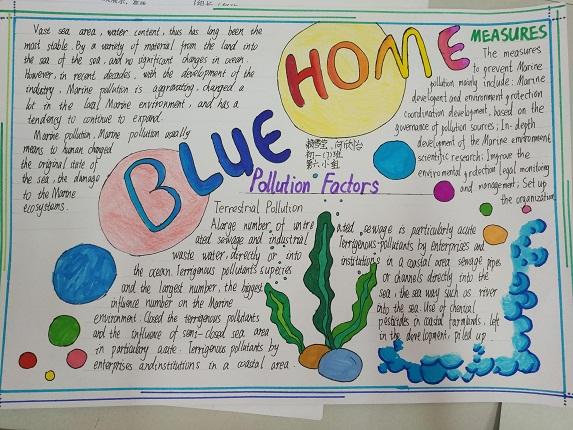 Vast sea area, water content, thus has long been the
most stable. By a variety of material from the land into
the sea of the sea, and no significant changes in ocean.
However, in recent decades, with the development of the
industry, Marine pollution is aggravating, changed a
lot in the local Marine environment, and has a
tendency to continue to expand.
Marine pollution, Marine pollution usually
means to human changed
the original state of
the sea, the damage
to the Marine
ecosystems.
BLUE
HOME
初一(7)班
第六小组
MEASURES
The measures
to prevent Marine
pollution mainly include: Marine
development and environment protection
coordination development, based on the
governance of pollution sources; In-depth
development of the Marine environment
scientific research; Improve the
environmental protection legal monitoring
and management; Set up
the organization
Pollution Factors
Terrestrial Pollution
A large number of untre
ated sewage and industrial
waste water directly or into
the ocean. Terrigenous pollutants superies
and the largest number, the biggest
influence number on the Marine
environment. Closed the terrigenous pollutants
and the influence of semi-closed sea area
in particularly acute. Terrigenous pollutants by
enterprises and institutions in a coastal area.
ated sewage is particularly acute
Terrigenous pollutants by enterprises and
institutions in a coastal area sewage pipes
or channels directly into the
sea, the sea way such as river
into the sea. Use of chemical
pesticides on coastal farmlands, left
in the development, piled up